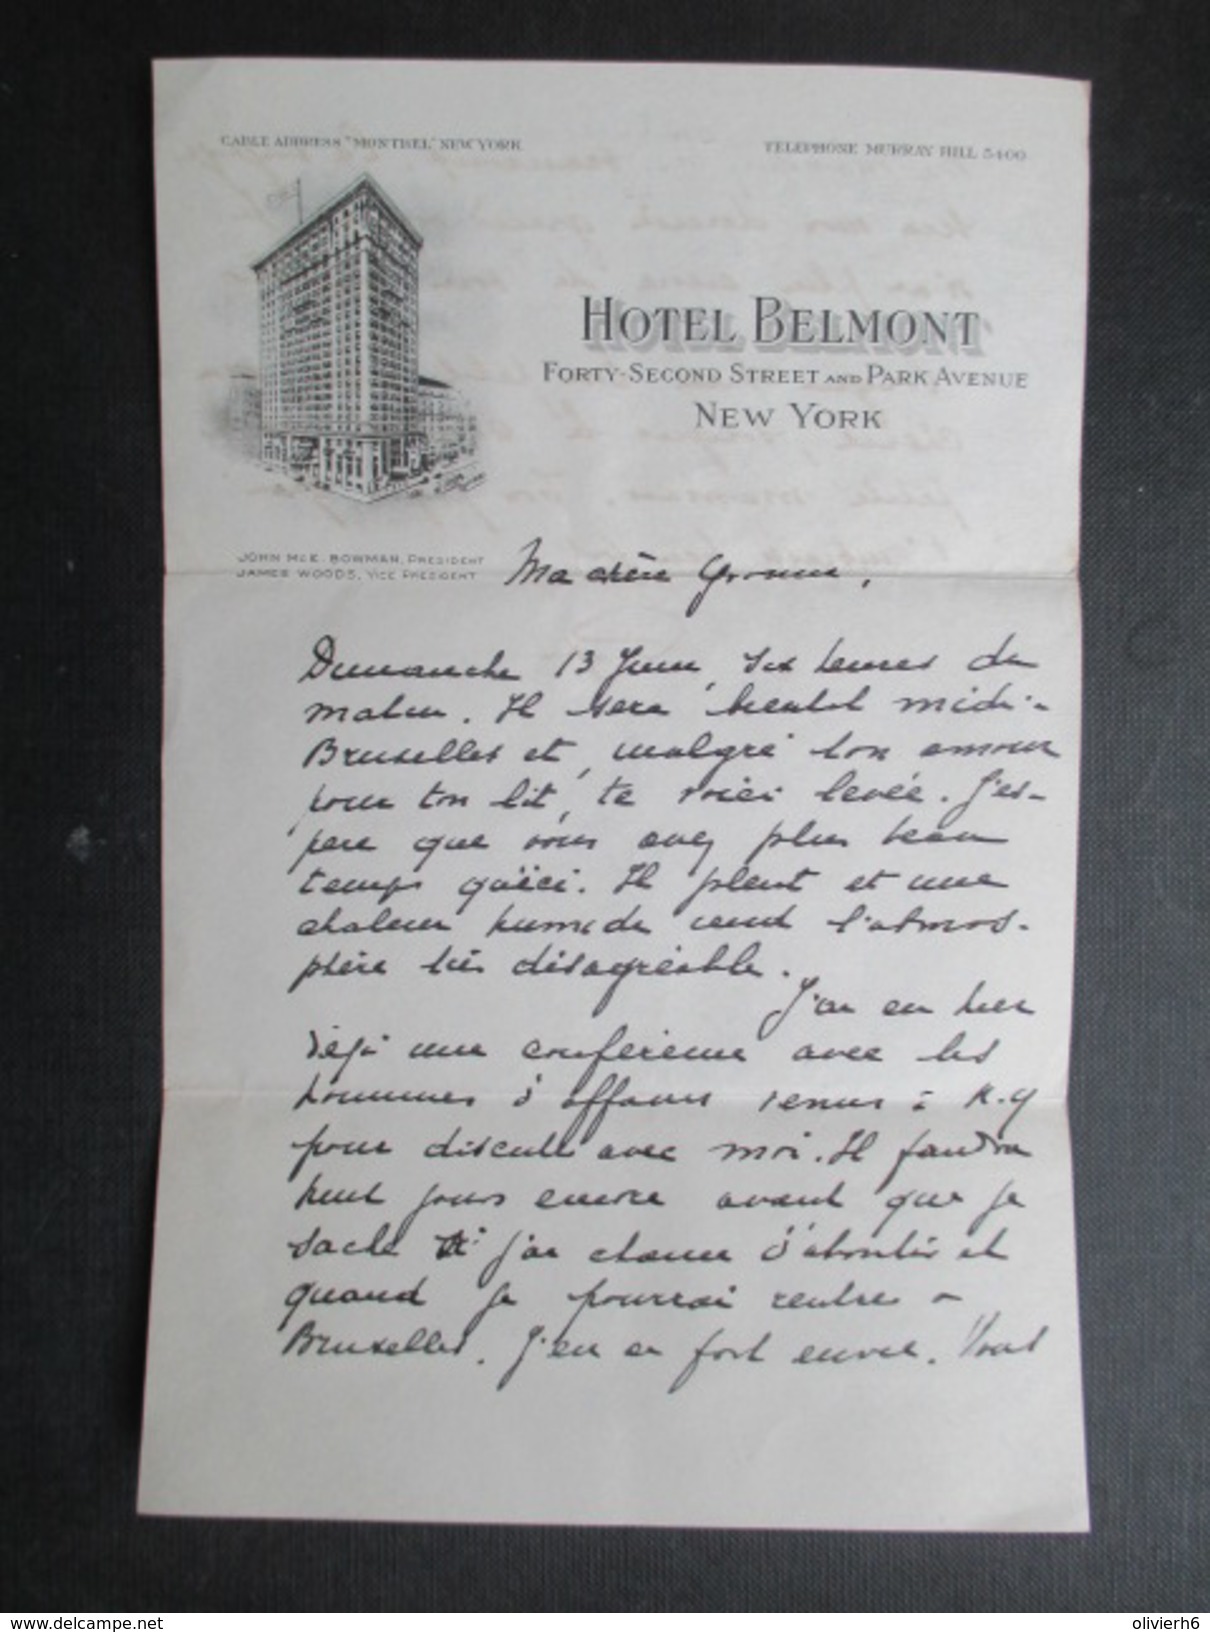 CABLE ADDRESS "MONTBEL" NEW YORK
TELEPHONE MURRAY HILL 5400
HOTEL BELMONT
FORTY-SECOND STREET AND PARK AVENUE
NEW YORK
JOHN McE. BOWMAN, PRESIDENT
JAMES WOODS, VICE PRESIDENT
Ma chère
Dimanche 13 Juin, six heures du
matin. Il sera bientôt midi à
Bruxelles et, malgré ton amour
pour ton lit, te voici levée. J'es-
père que vous avez plus beau
temps qu'ici. Il pleut et une
chaleur humide rend l'atmos-
phère très désagréable.
J'ai eu hier
déjà une conférence avec les
hommes d'affaires venus à N.Y
pour discuter avec moi. Il faudra
huit jours encore avant que je
sache si j'ai chance d'aboutir et
quand je pourrai rentrer à
Bruxelles. J'en ai fort envie. Vous
delcampe.net
olivierh6